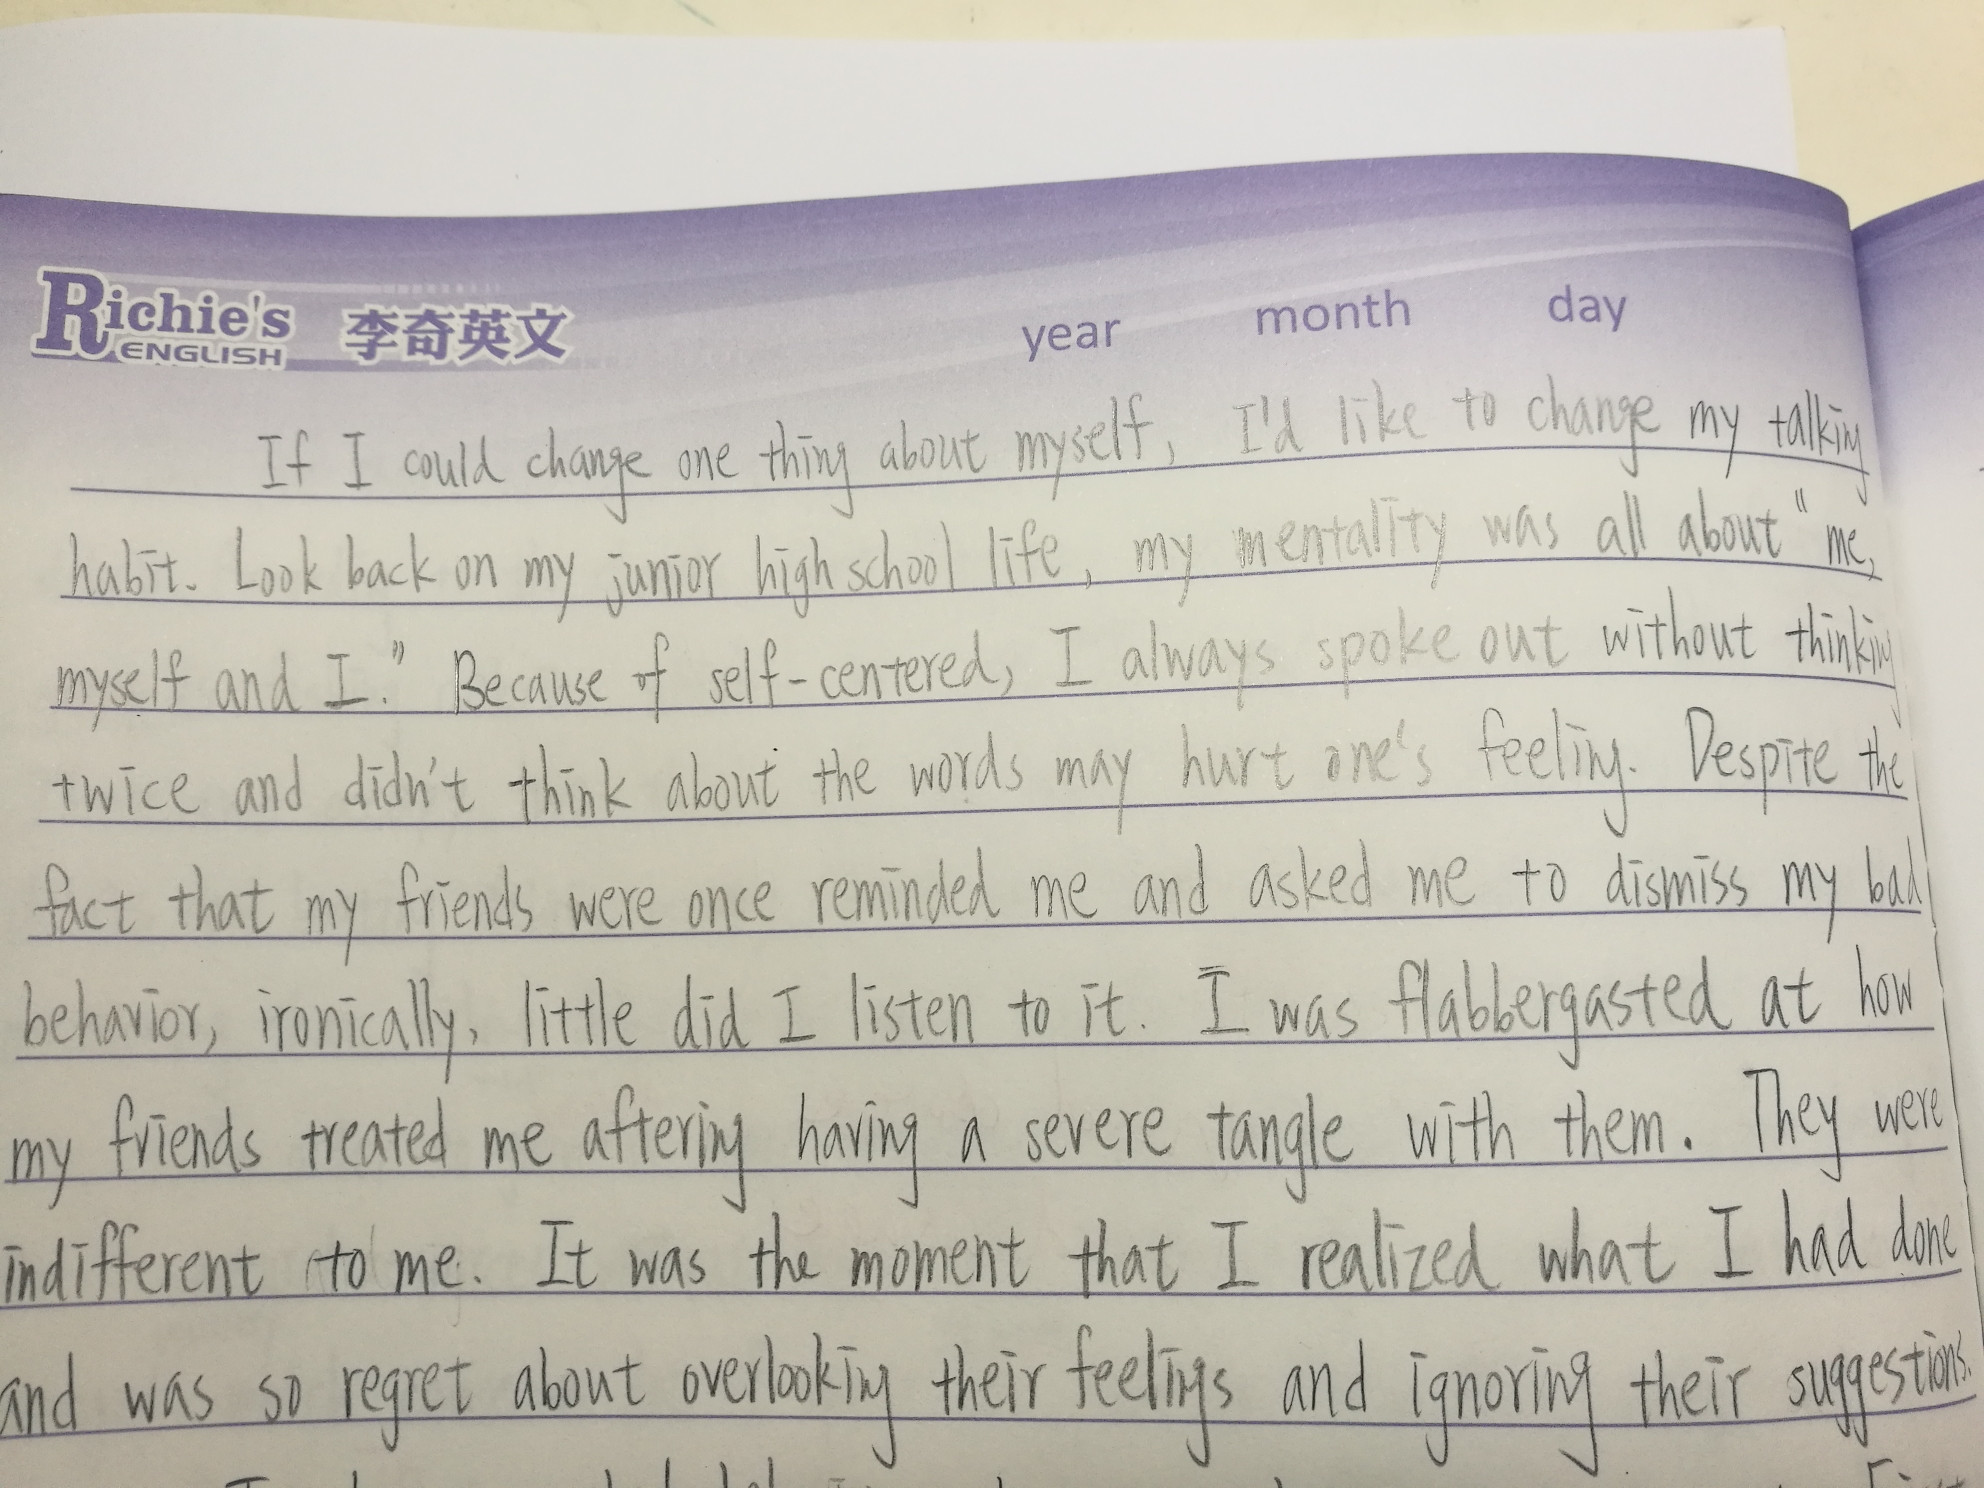 Richie's
ENGLISH 李奇英文
year month day
If I could change one thing about myself, I'd like to change my talking
habit. Look back on my junior high school life, my mentality was all about "me,
myself and I." Because of self-centered, I always spoke out without thinking
twice and didn't think about the words may hurt one's feeling. Despite the
fact that my friends were once reminded me and asked me to dismiss my bad
behavior, ironically, little did I listen to it. I was flabbergasted at how
my friends treated me aftering having a severe tangle with them. They were
indifferent to me. It was the moment that I realized what I had done
and was so regret about overlooking their feelings and ignoring their suggestions.